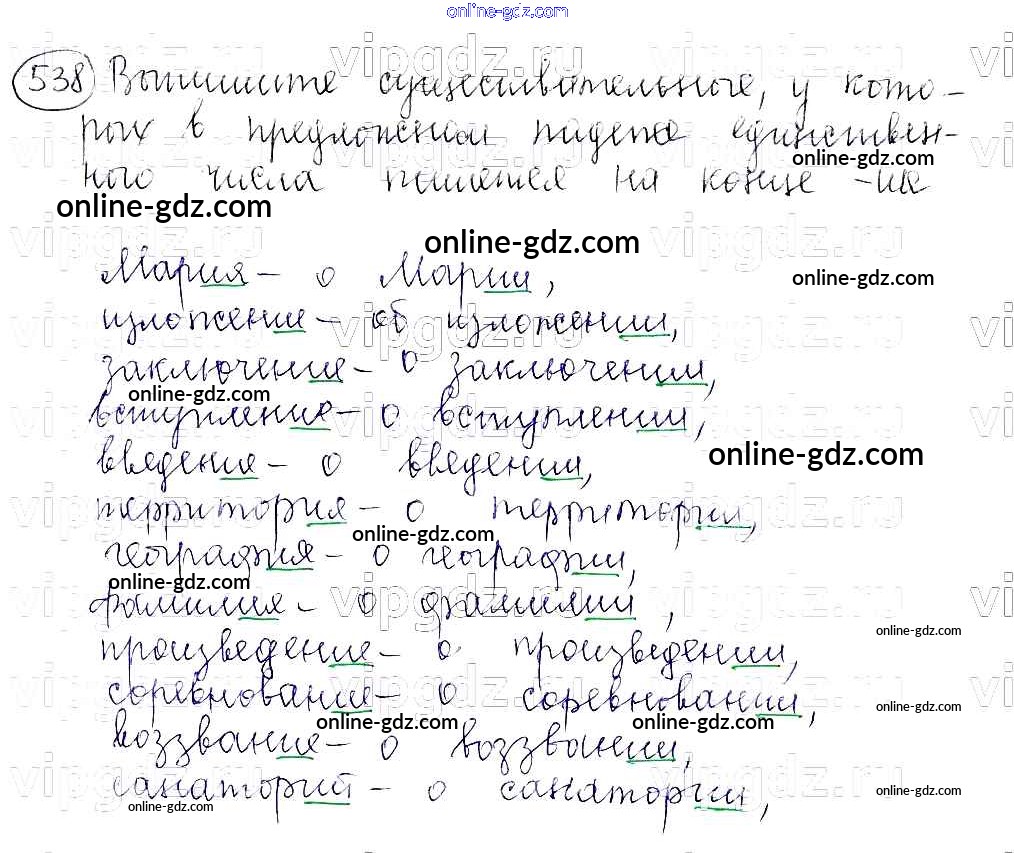 online-gdz.com
538 Выпишите существительные, у кото-
рых в предложном падеже единствен-
online-gdz.com
ного числа пишется на конце -ии
online-gdz.com
online-gdz.com
Мария - о Марии,
online-gdz.com
изложение - об изложении,
заключение - о заключении,
online-gdz.com
вступление - о вступлении,
введение - о введении,
online-gdz.com
территория - о территории,
online-gdz.com
география - о географии,
online-gdz.com
фамилия - о фамилии,
online-gdz.com
произведение - о произведении,
соревнование - о соревновании,
online-gdz.com
online-gdz.com online-gdz.com
воззвание - о воззвании,
санаторий - о санатории,
online-gdz.com online-gdz.com online-gdz.com
vipgdz.ru